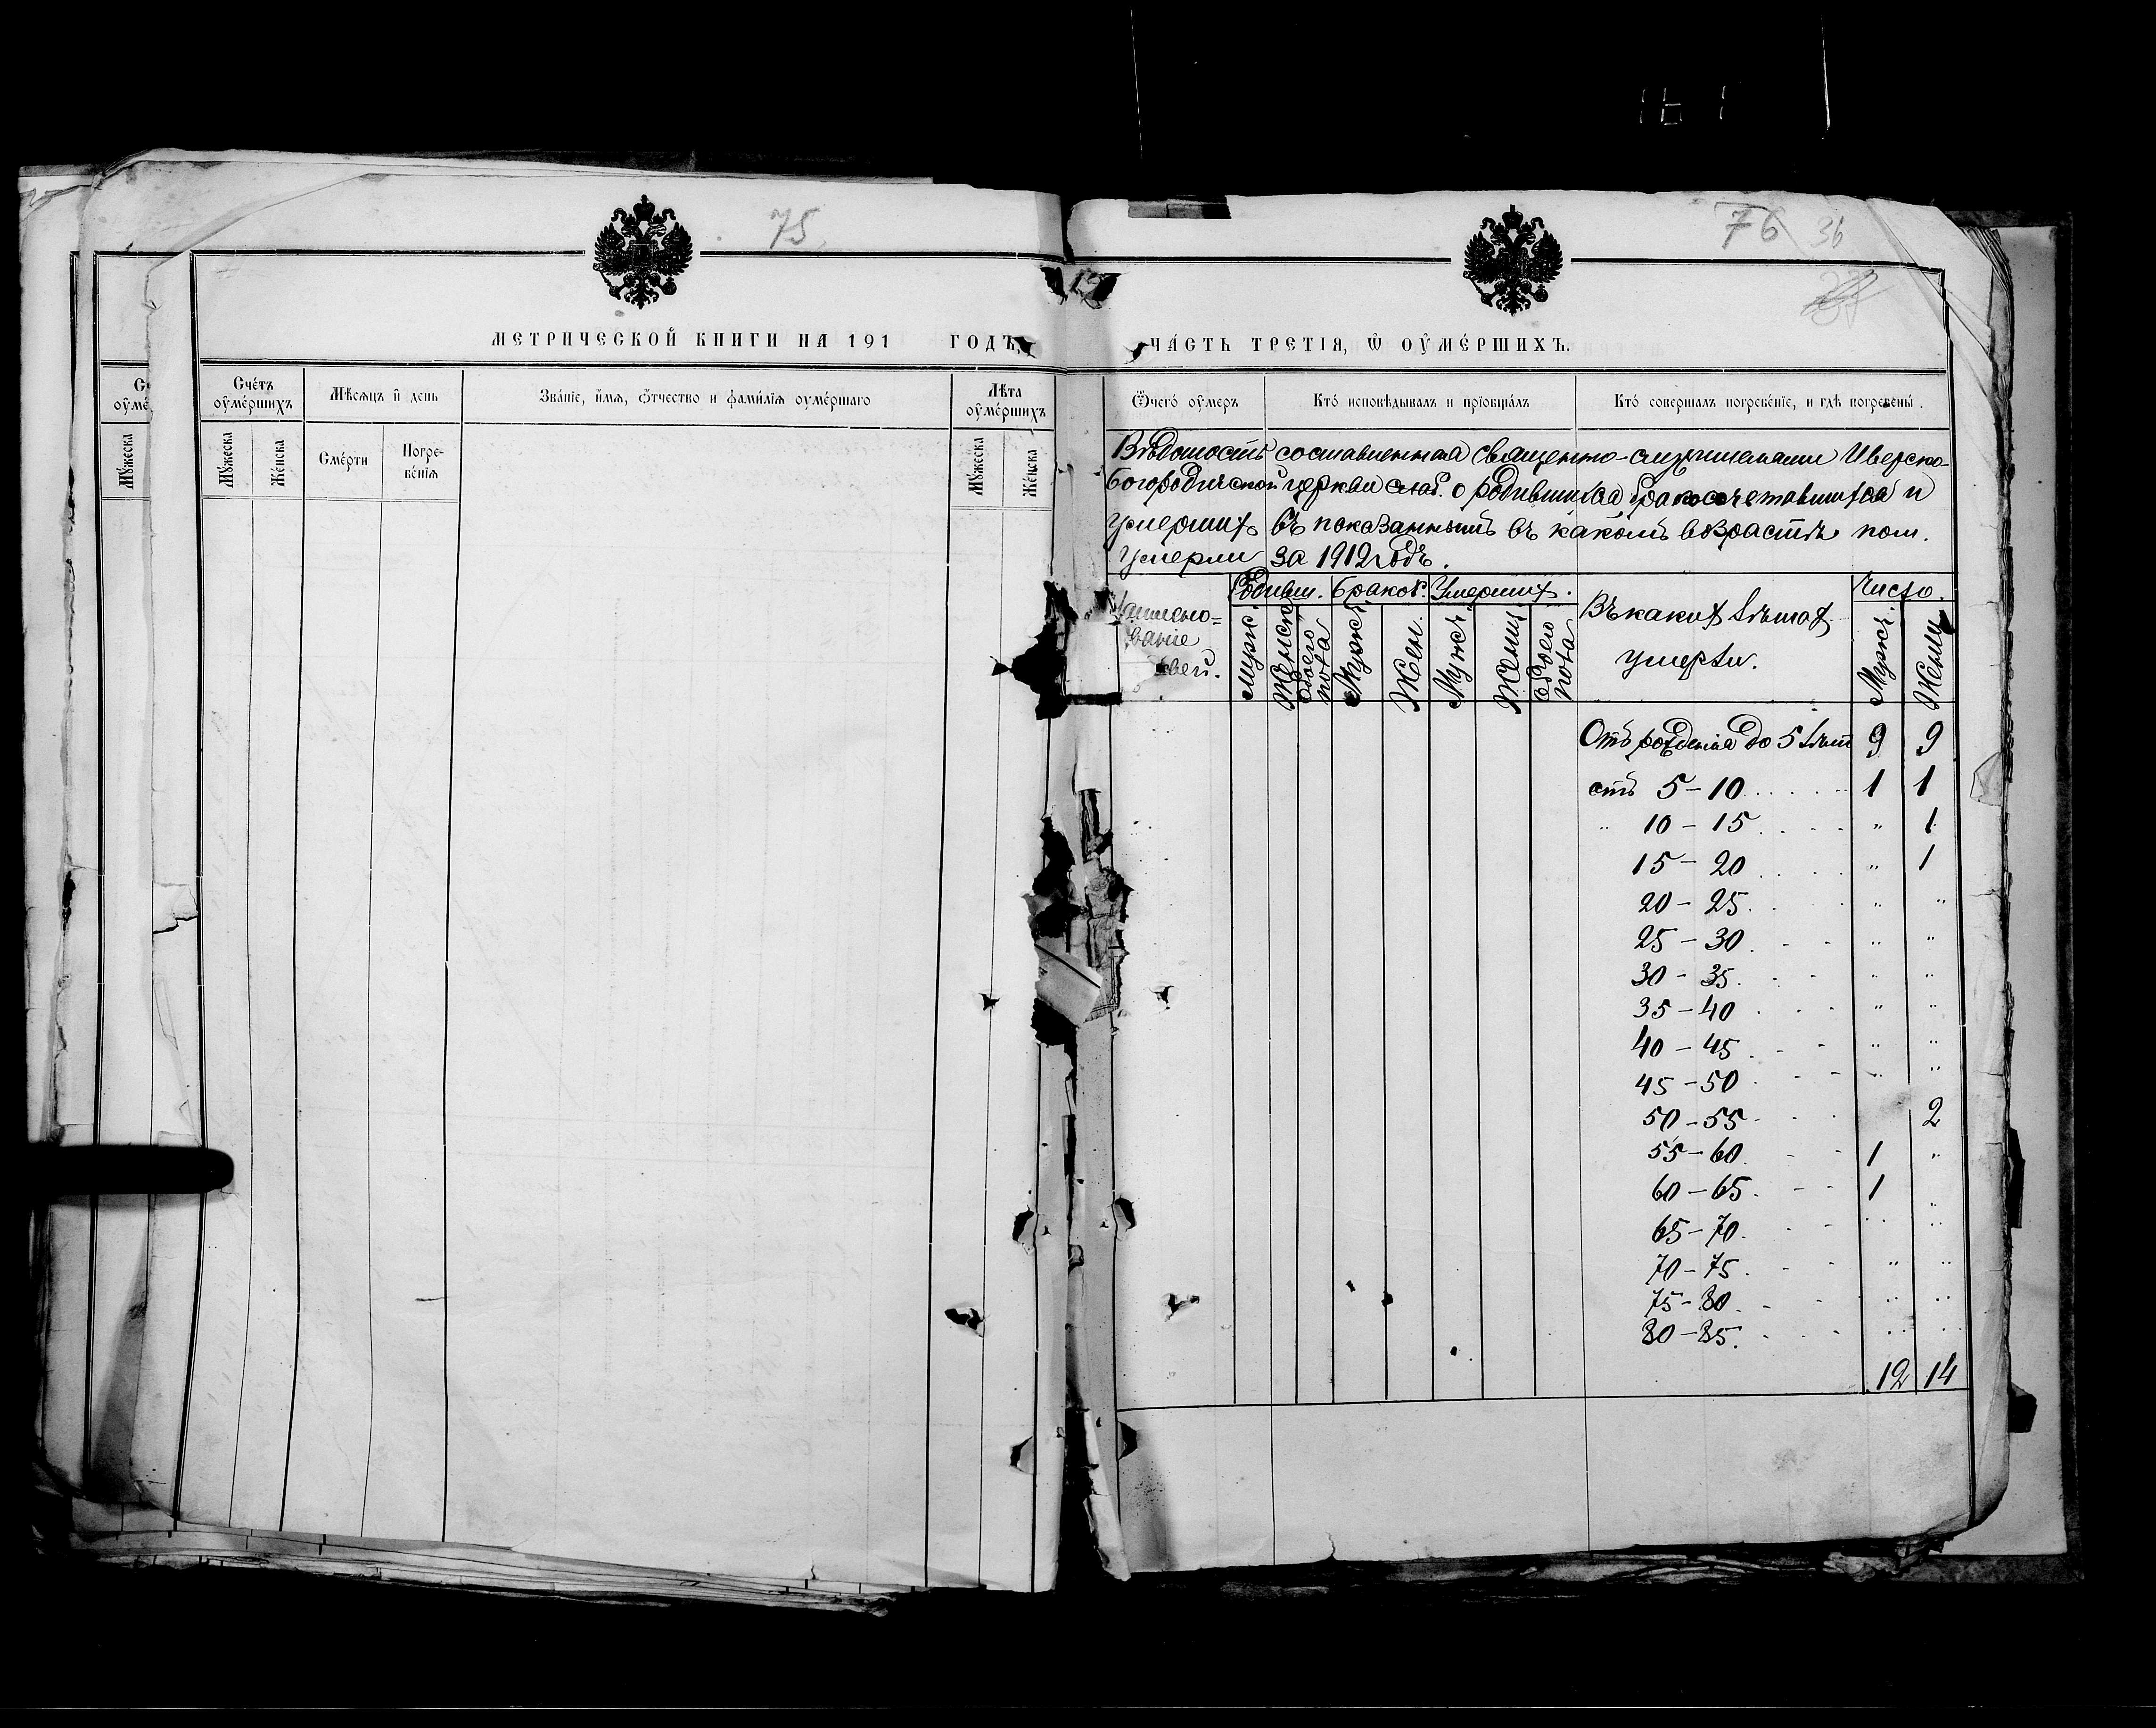 75
МЕТРИЧЕСКОЙ КНИГИ НА 191 ГОДЪ,
Счетъ оумершихъ
Мѣсяцъ и день
Званіе, имя, отчество и фамилія оумершаго
Лѣта оумершихъ
Мужеска
Мужеска
Женска
Смерти
Погре-
бенія
Мужеска
Женска
76 36
ЧАСТЬ ТРЕТІЯ, Ѡ ОУМЕРШИХЪ.
Ѿчегѡ оумеръ
Кто исповѣдывалъ и пріобщалъ
Кто совершалъ погребеніе, и гдѣ погребены
Вѣдомость составленная священно-служителями Иверско-
Богородичской церкви слоб. о родившихся, бракосочетавшихся и
умершихъ съ показаніемъ въ какомъ возрастѣ пол.
умерли за 1912 годъ.
Родивш. Браков. Умершихъ.
Въ какихъ лѣтахъ
умерли.
Число.
Наимено-
ваніе
Мужс.
Женска
Обоего пола
Мужск.
Жен.
Мужс.
Женш.
Обоего пола
Мужс.
Женш
Отъ рожденія до 5 лѣтъ 9 9
отъ 5 – 10 . . . . . 1 1
„ 10 – 15 . . . . „ 1
15 – 20 . . . . „ 1
20 – 25 . . „ „
25 – 30 . - - „ „
30 – 35 . - - „ „
35 – 40 . - - „ „
40 – 45 . - - „ „
45 – 50 . - - „ „
50 – 55 - - - 2
55 – 60 . - - 1 „
60 – 65 . - - 1 „
65 – 70 . - - „ „
70 – 75 . - - „ „
75 – 80 . - - „ „
80 – 85 . - - „ „
12 14